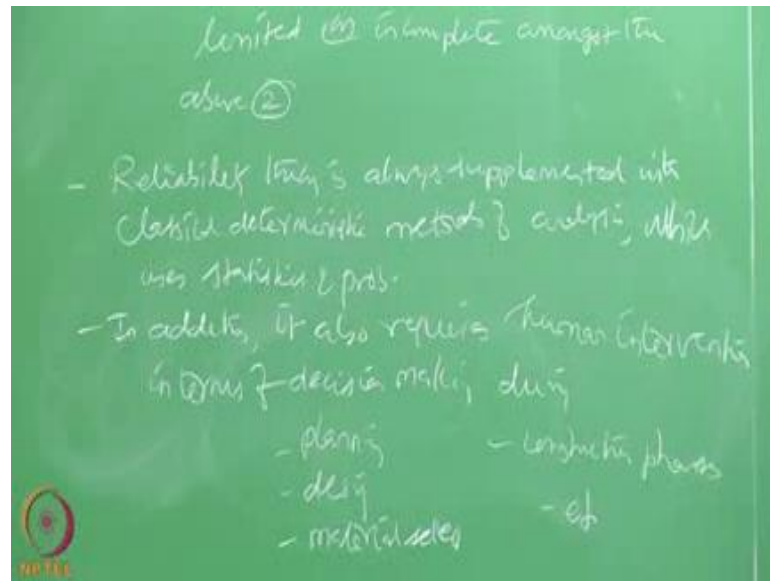 limited (or) incomplete amongst the
above ②
- Reliability theory is always supplemented with
classical deterministic methods of analysis, which
uses statistics & prob.
- In addition, it also requires human intervention
in terms of decision making during
- planning - construction phases
- design - etc
- material selec
NPTEL